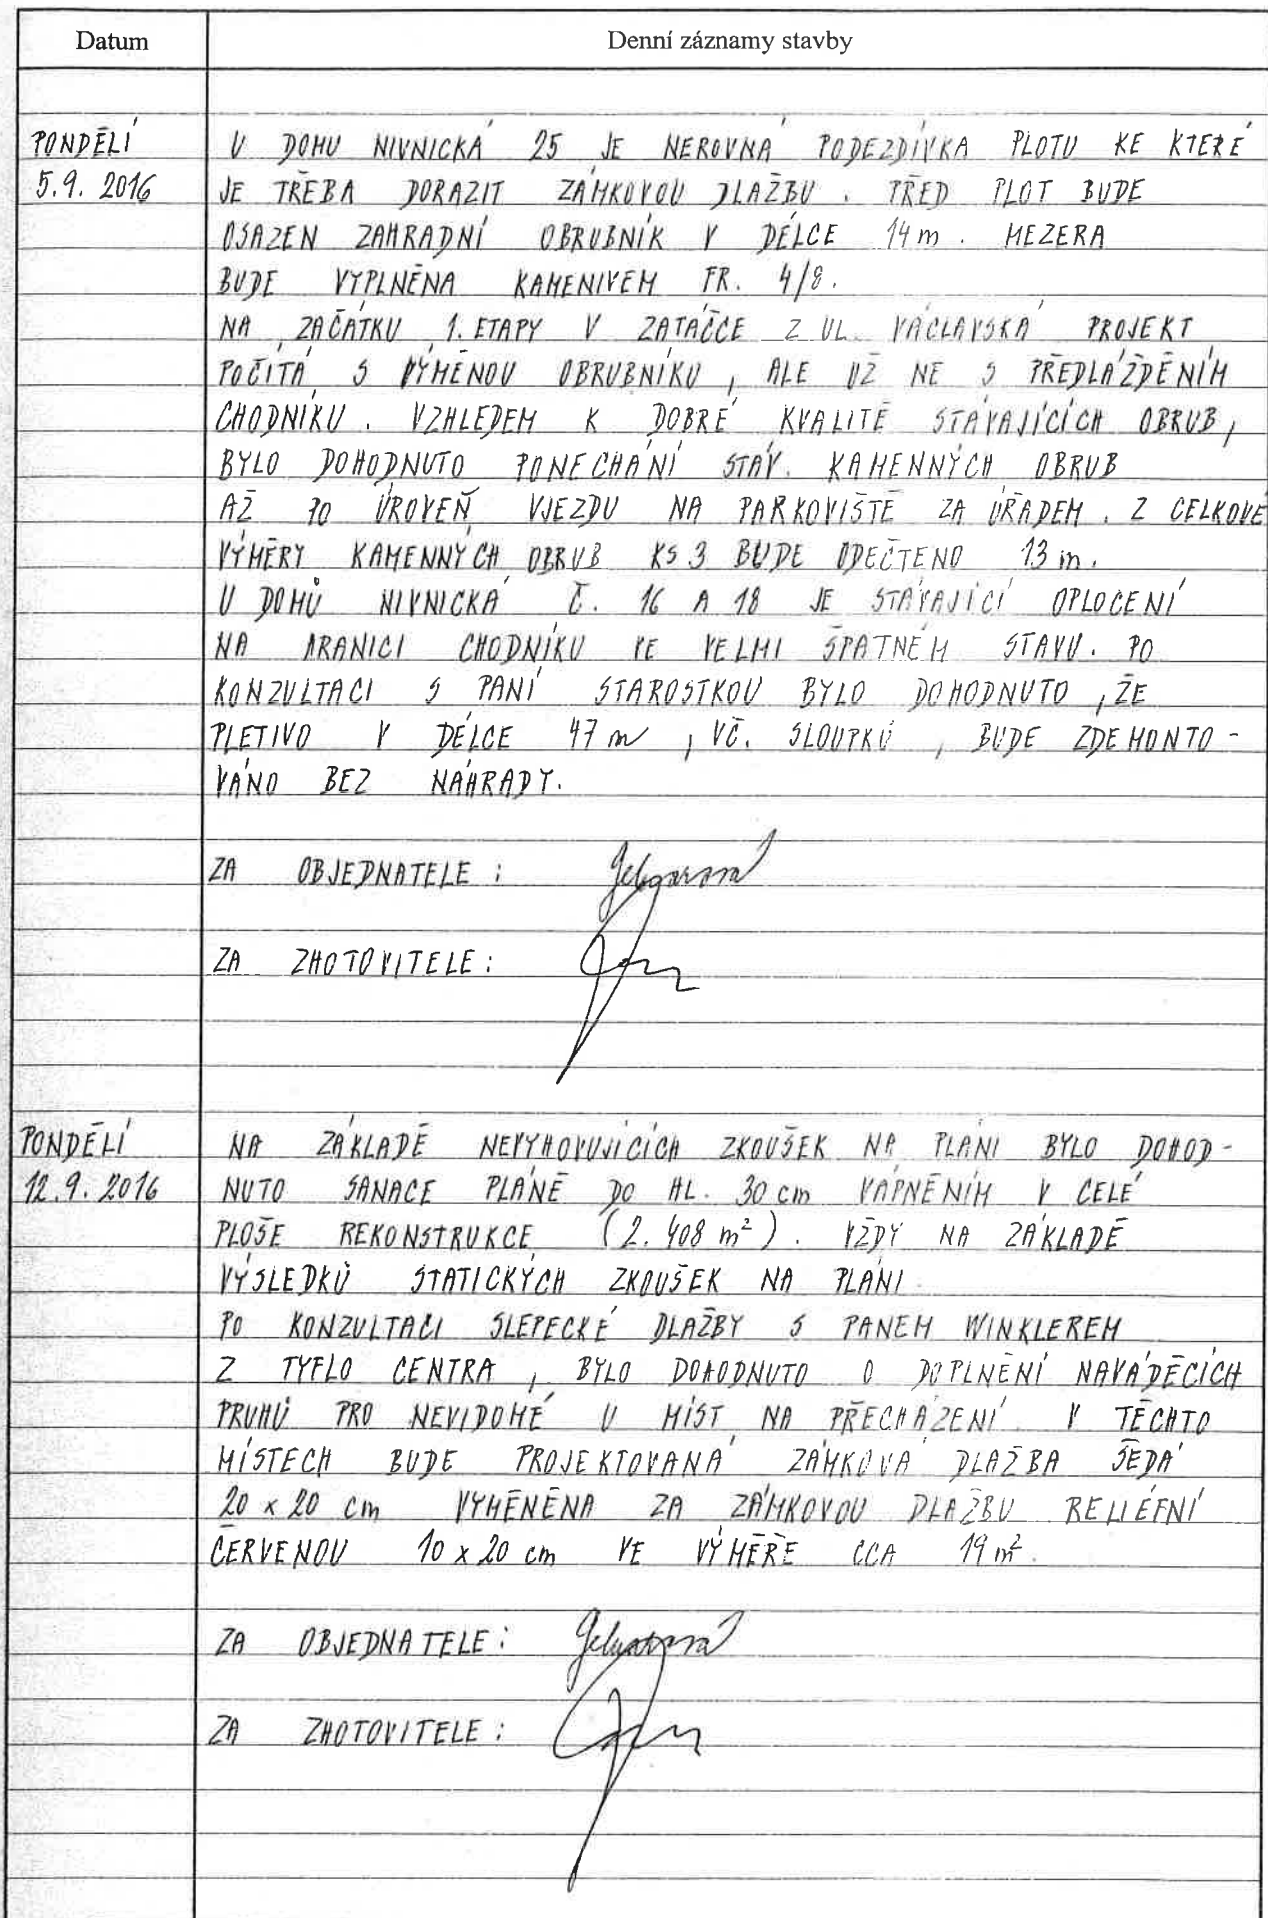 Datum Denní záznamy stavby
PONDĚLÍ U DOMU NIVNICKÁ 25 JE NEROVNÁ PODEZDÍVKA PLOTU KE KTERÉ
5.9. 2016 JE TŘEBA DORAZIT ZÁMKOVOU DLAŽBU. PŘED PLOT BUDE
OSAZEN ZAHRADNÍ OBRUBNÍK V DÉLCE 14 m. MEZERA
BUDE VYPLNĚNA KAMENIVEM FR. 4/8.
NA ZAČÁTKU 1. ETAPY V ZATÁČCE Z UL. VÁCLAVSKÁ PROJEKT
POČÍTÁ S VÝMĚNOU OBRUBNÍKU, ALE UŽ NE S PŘEDLÁŽDĚNÍM
CHODNÍKU. VZHLEDEM K DOBRÉ KVALITĚ STÁVAJÍCÍCH OBRUB,
BYLO DOHODNUTO PONECHÁNÍ STÁV. KAMENNÝCH OBRUB
AŽ PO ÚROVEŇ VJEZDU NA PARKOVIŠTĚ ZA ÚŘADEM. Z CELKOVÉ
VÝMĚRY KAMENNÝCH OBRUB KS 3 BUDE ODEČTENO 13 m.
U DOMŮ NIVNICKÁ Č. 16 A 18 JE STÁVAJÍCÍ OPLOCENÍ
NA HRANICI CHODNÍKU VE VELMI ŠPATNÉM STAVU. PO
KONZULTACI S PANÍ STAROSTKOU BYLO DOHODNUTO, ŽE
PLETIVO V DÉLCE 47 m, VČ. SLOUPKŮ, BUDE ZDEMONTO-
VÁNO BEZ NÁHRADY.
ZA OBJEDNATELE:
ZA ZHOTOVITELE:
PONDĚLÍ NA ZÁKLADĚ NEVYHOVUJÍCÍCH ZKOUŠEK NA PLÁNI BYLO DOHOD-
12.9. 2016 NUTO SANACE PLÁNĚ DO HL. 30 cm VÁPNĚNÍM V CELÉ
PLOŠE REKONSTRUKCE (2.408 m²). VŽDY NA ZÁKLADĚ
VÝSLEDKŮ STATICKÝCH ZKOUŠEK NA PLÁNI.
PO KONZULTACI SLEPECKÉ DLAŽBY S PANEM WINKLEREM
Z TYFLO CENTRA, BYLO DOHODNUTO O DOPLNĚNÍ NAVÁDĚCÍCH
PRUHŮ PRO NEVIDOMÉ U MÍST NA PŘECHÁZENÍ. V TĚCHTO
MÍSTECH BUDE PROJEKTOVANÁ ZÁMKOVÁ DLAŽBA ŠEDÁ
20 x 20 cm VYMĚNĚNA ZA ZÁMKOVOU DLAŽBU RELIÉFNÍ
ČERVENOU 10 x 20 cm VE VÝMĚŘE CCA 19 m².
ZA OBJEDNATELE:
ZA ZHOTOVITELE: